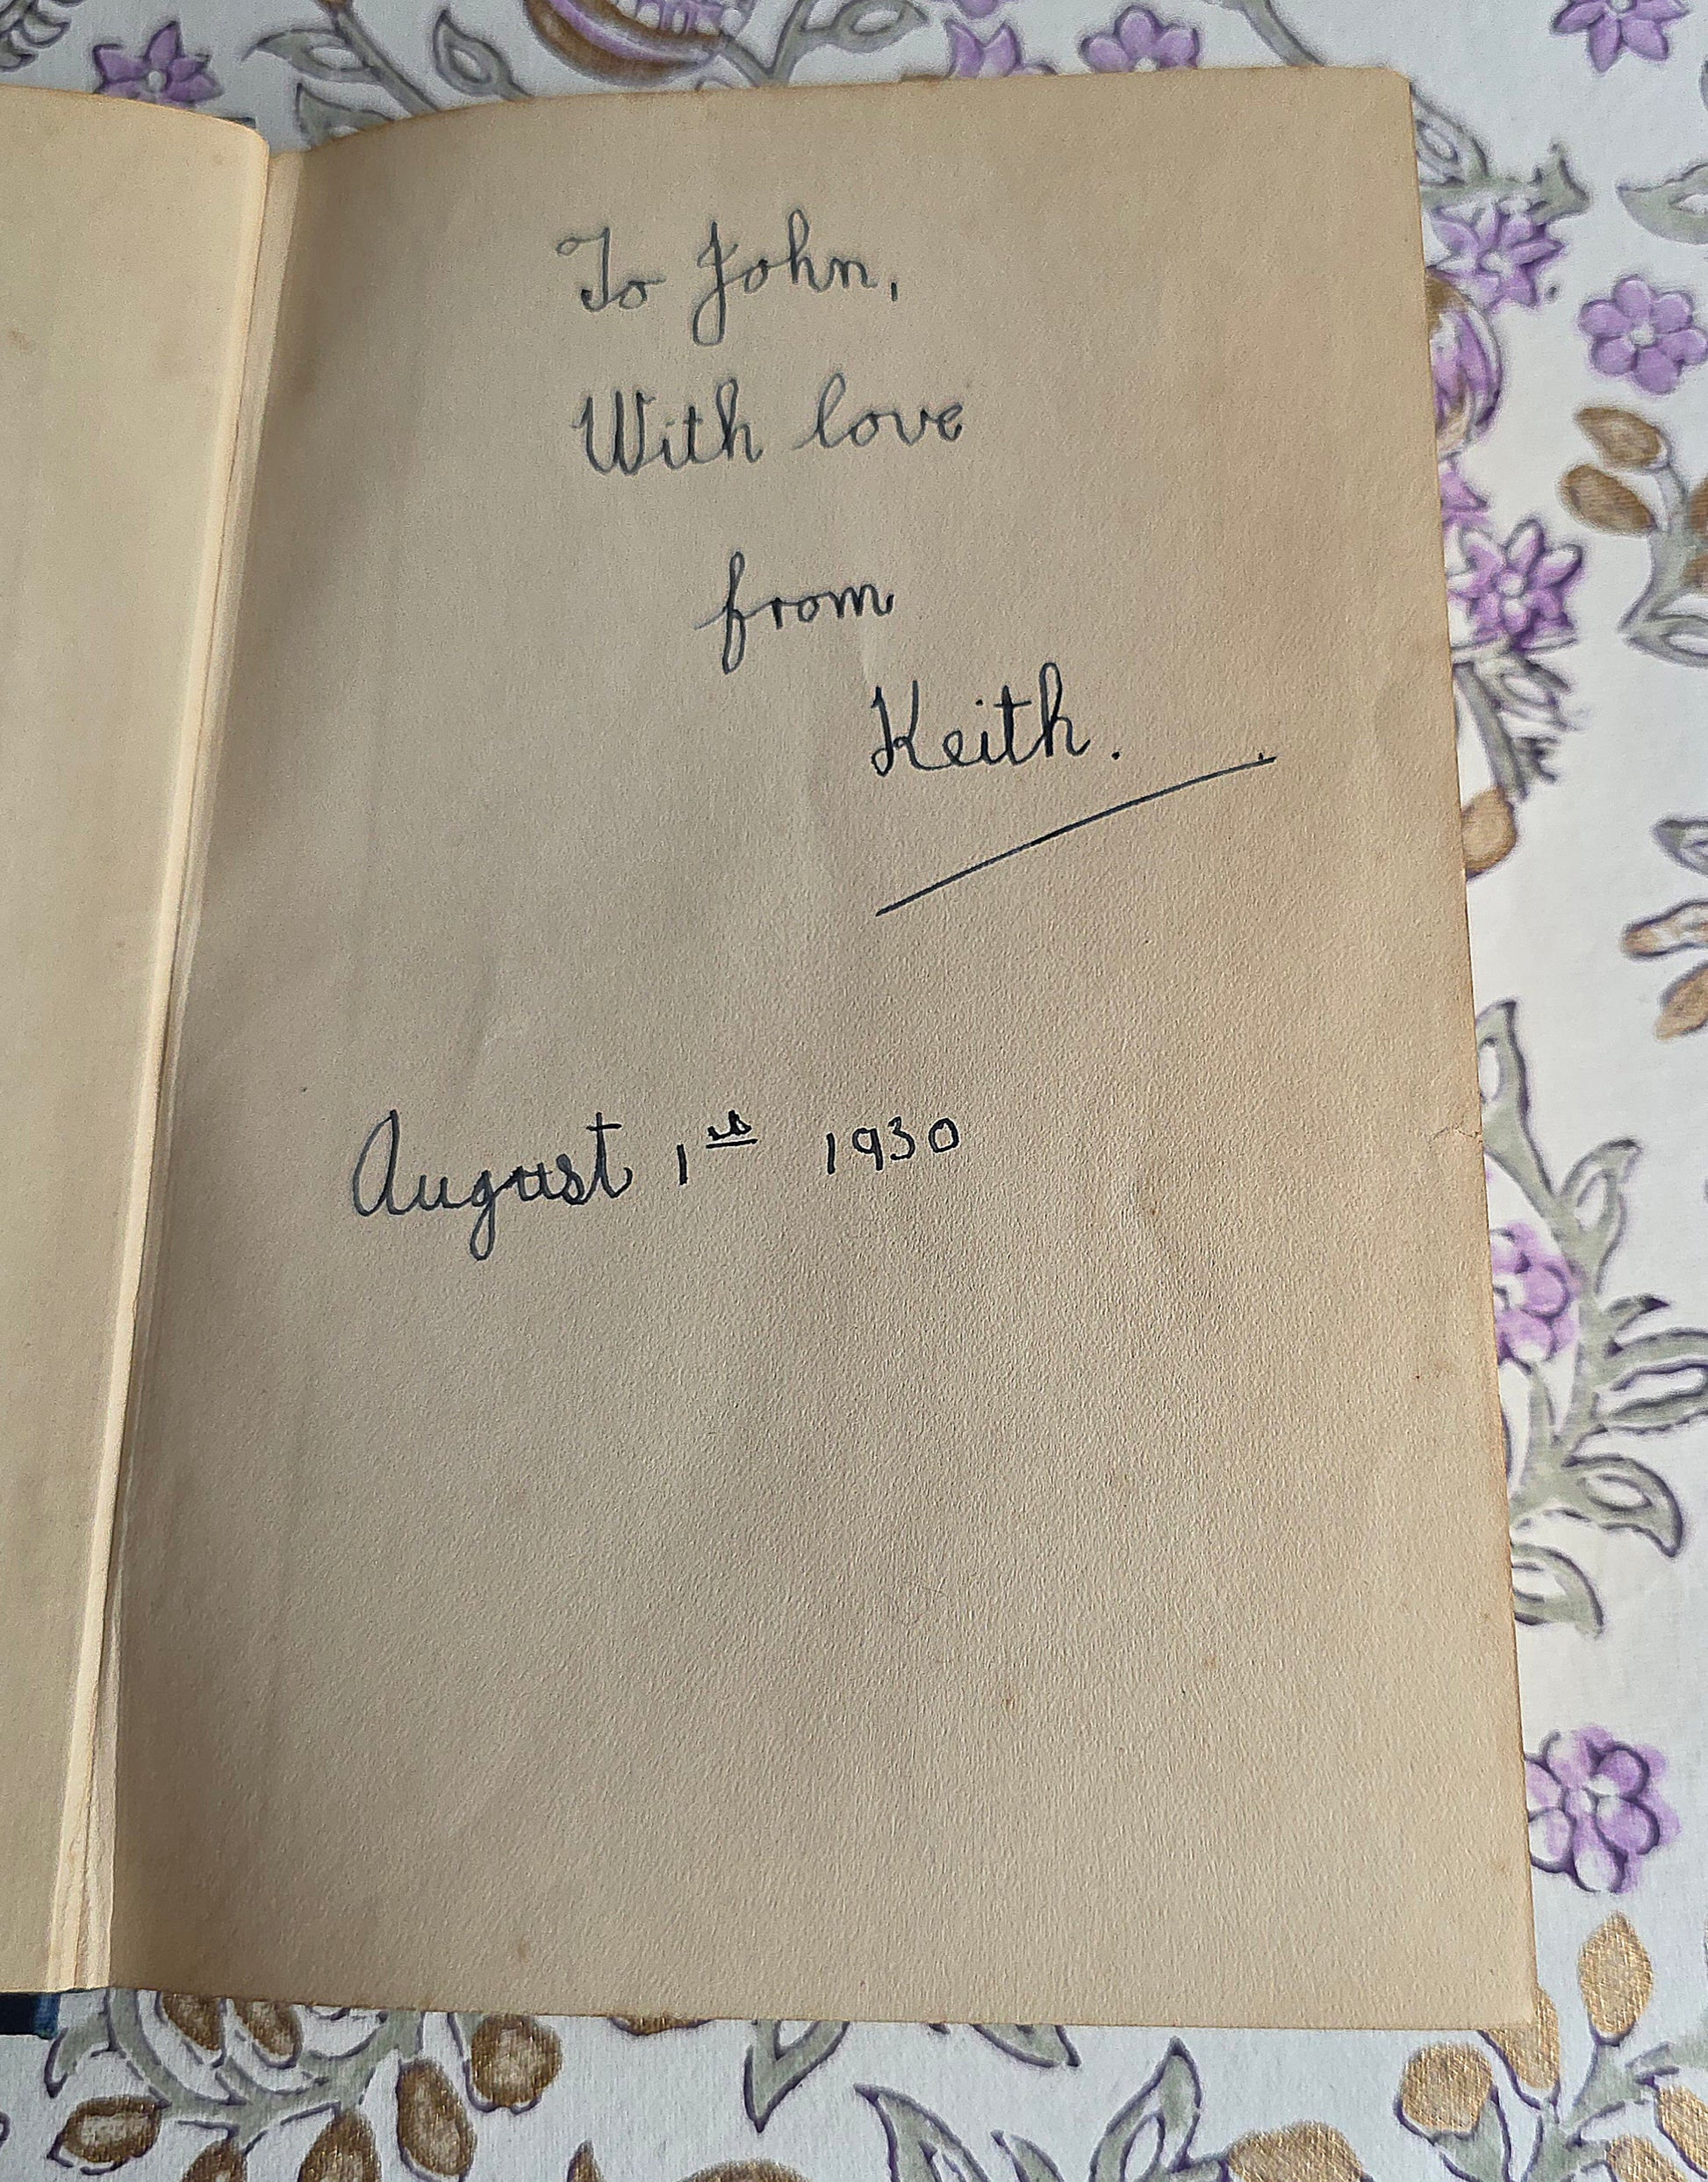 To John,
With love
from
Keith.
August 1st 1930